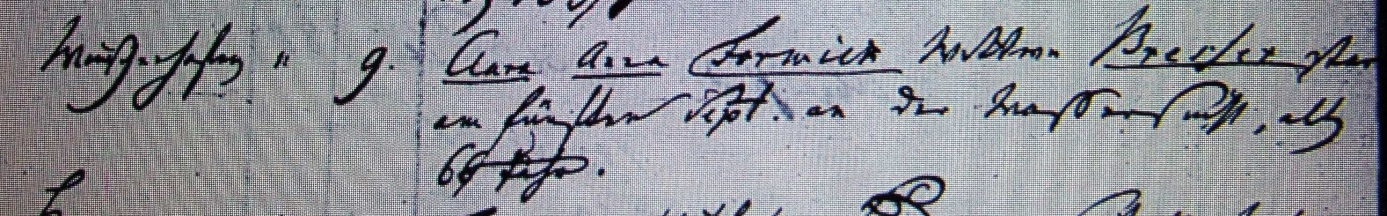 " 9. Clara Anna Formick Wittwe Brecker starb
am fünften Sept. an der Wassersucht, alt
68 Jahr.